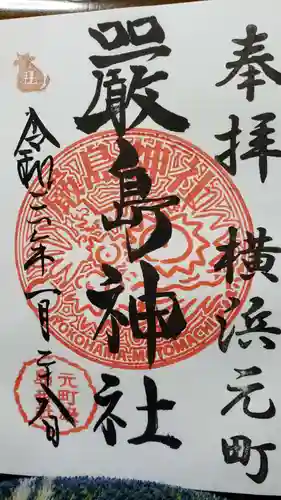 奉拝 横浜元町
嚴島神社
令和三年一月二十八日
丑
嚴島神社
YOKOHAMA-MOTOMACHI
元町